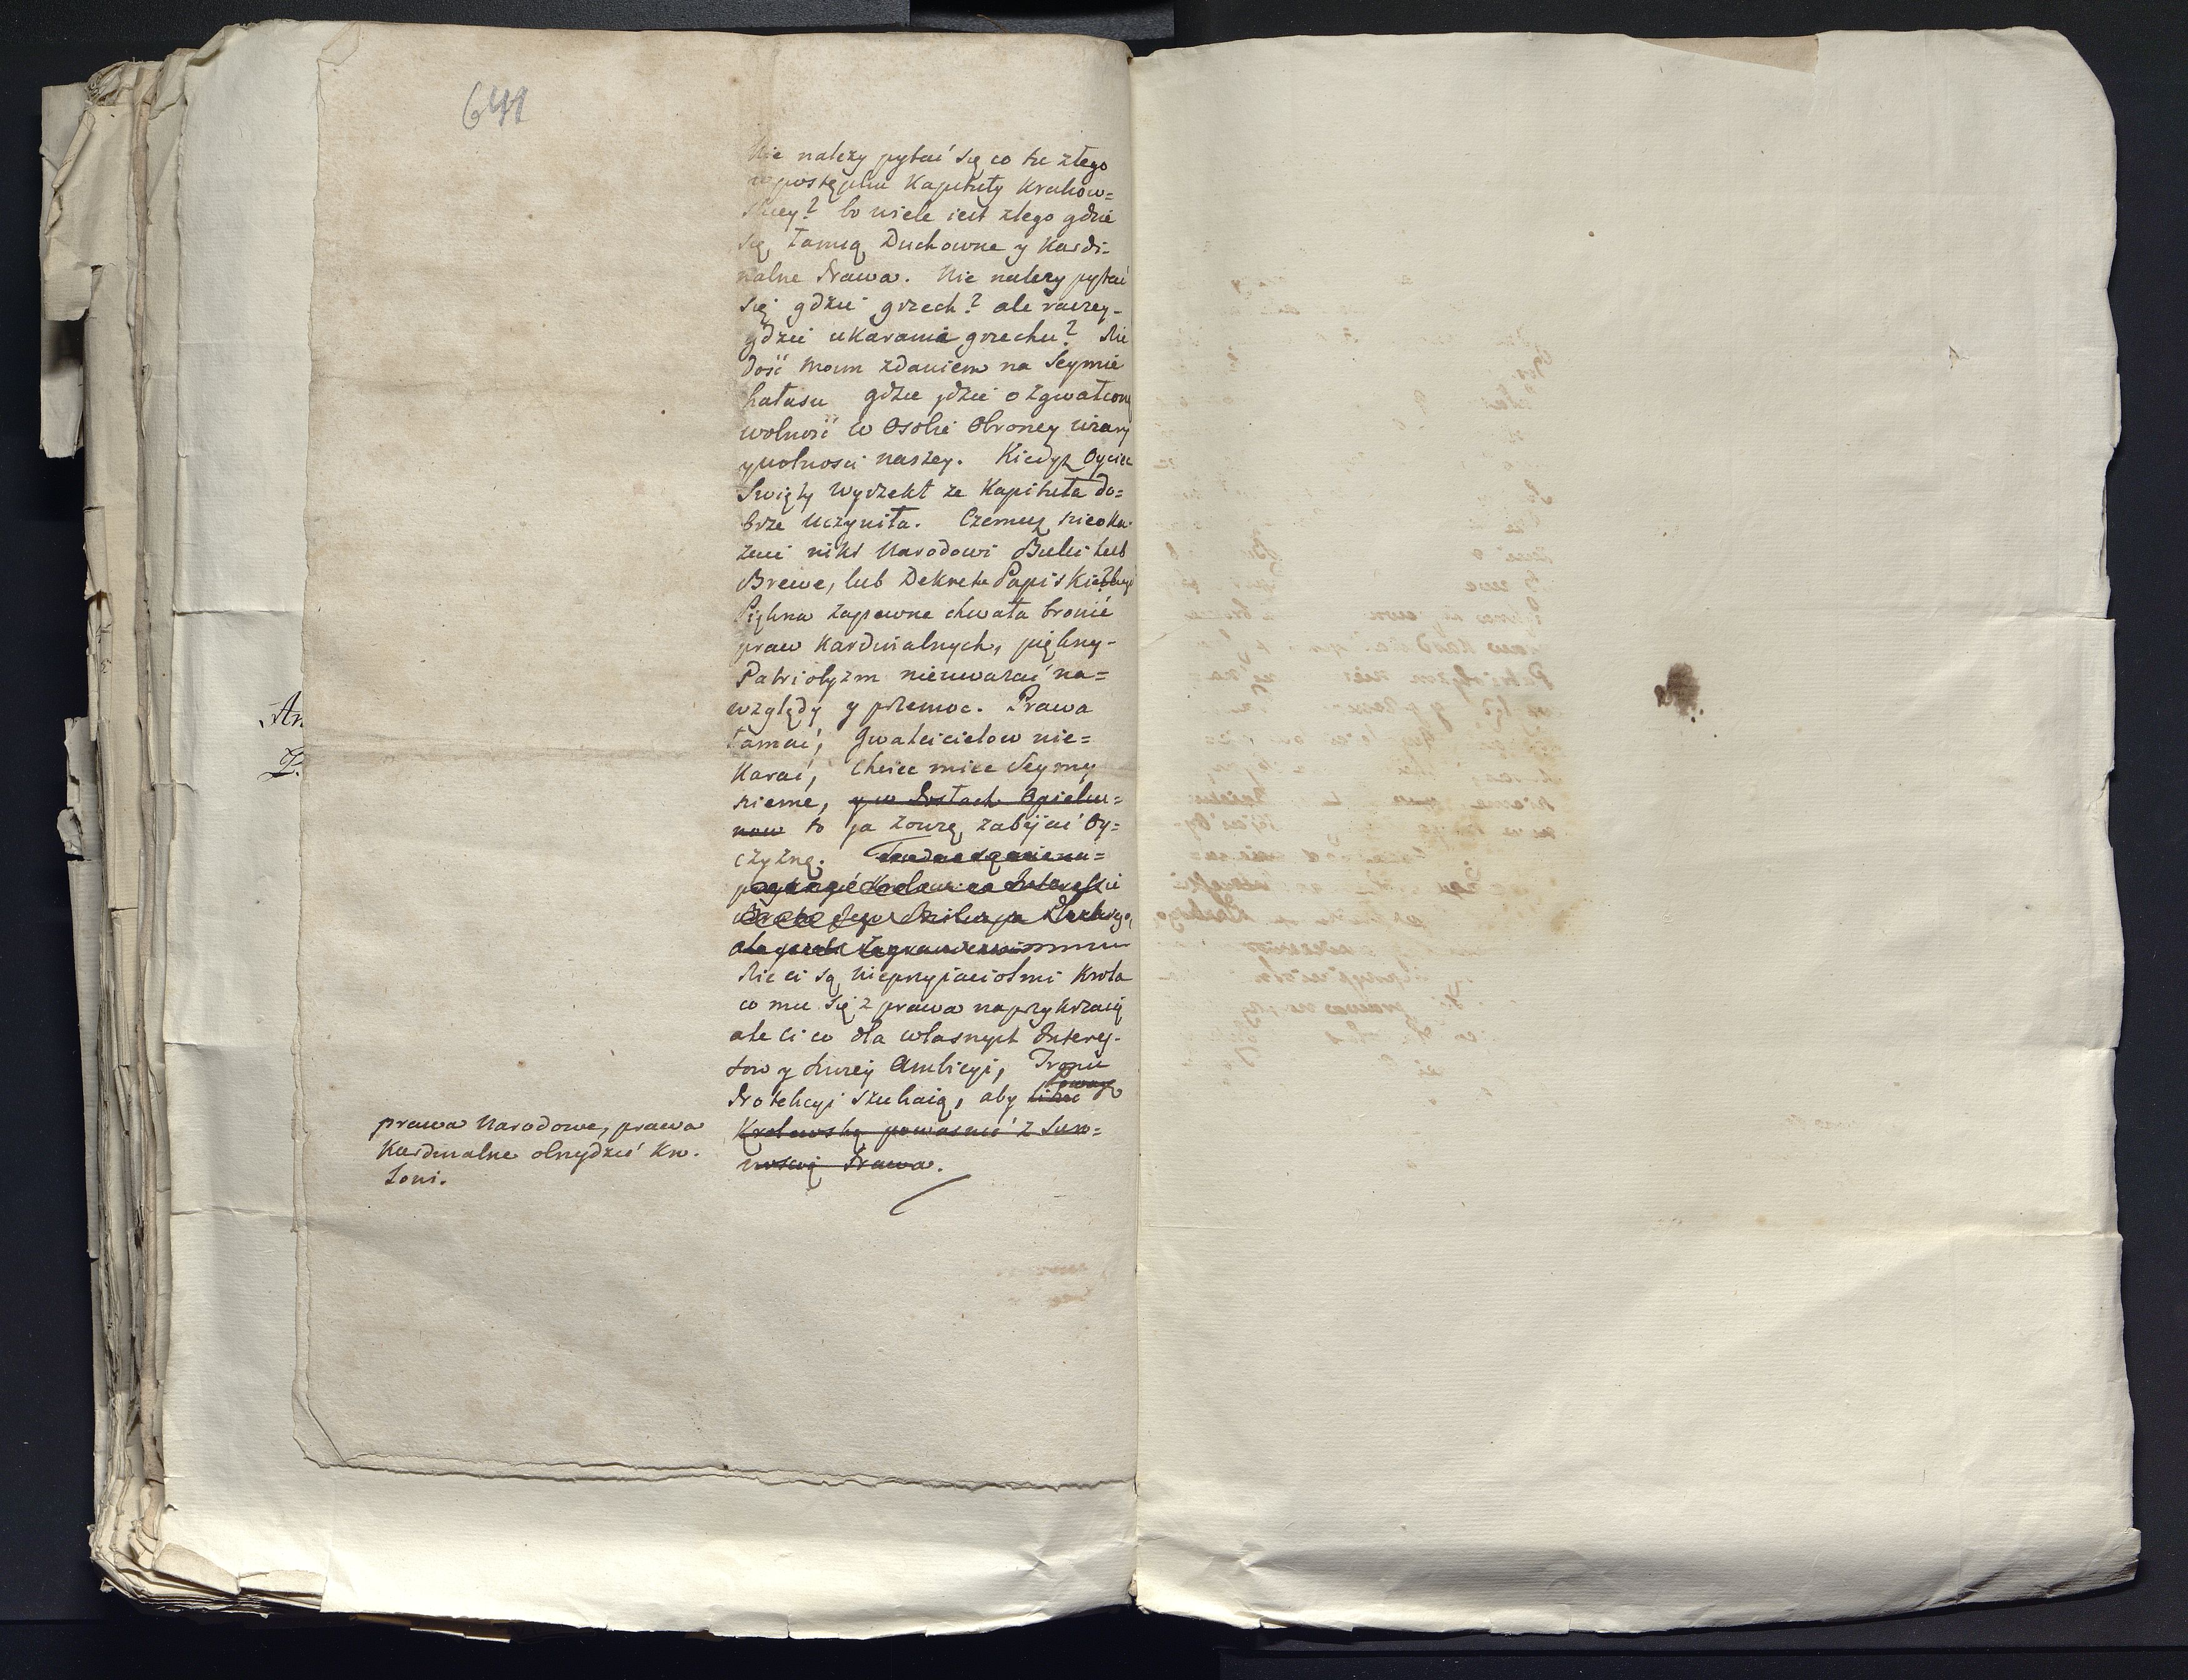 641
Nie należy pytać się co tu złego
w postępku Kapituły Krakow=
skiey? bo wiele iest złego gdzie
się łamią Duchowne y Kardi=
nalne Prawa. Nie należy pytać
się gdzie grzech? ale raczey
gdzie ukaranie grzechu? Nie
dość moim zdaniem na Seymie
hałasu gdzie idzie o zgwałconą
wolność w Osobie Obroncy wiary
y wolności naszey. Kiedyż Oyciec
Swięty wyrzekł że Kapituła do=
brze uczyniła. Czemuż nieoka=
zuie nikt Narodowi Bulli lub
Brewe, lub Dekretu Papiskie
Piękna zapewne chwała bronić
praw Kardinalnych, piękny
Patriotyzm nieuważać na=
względy y przemoc. Prawa
łamać, Gwałcicielow nie=
karać, chcieć mieć Seymy
nieme, y w Opieku=
now to ja zowię zabijać Oy=
czyznę.
Nie ci są nieprzyjaciołmi Krola
co mu się z prawa naprzykrzaią
ale ci co dla własnych Interes=
sow y Ambicyi, Tronu
Protekcyi szukaią, aby
Krolewską z
Prawa.
prawa Narodowe, prawa
Kardinalne obrzydzić Kro=
lowi.
An
P.